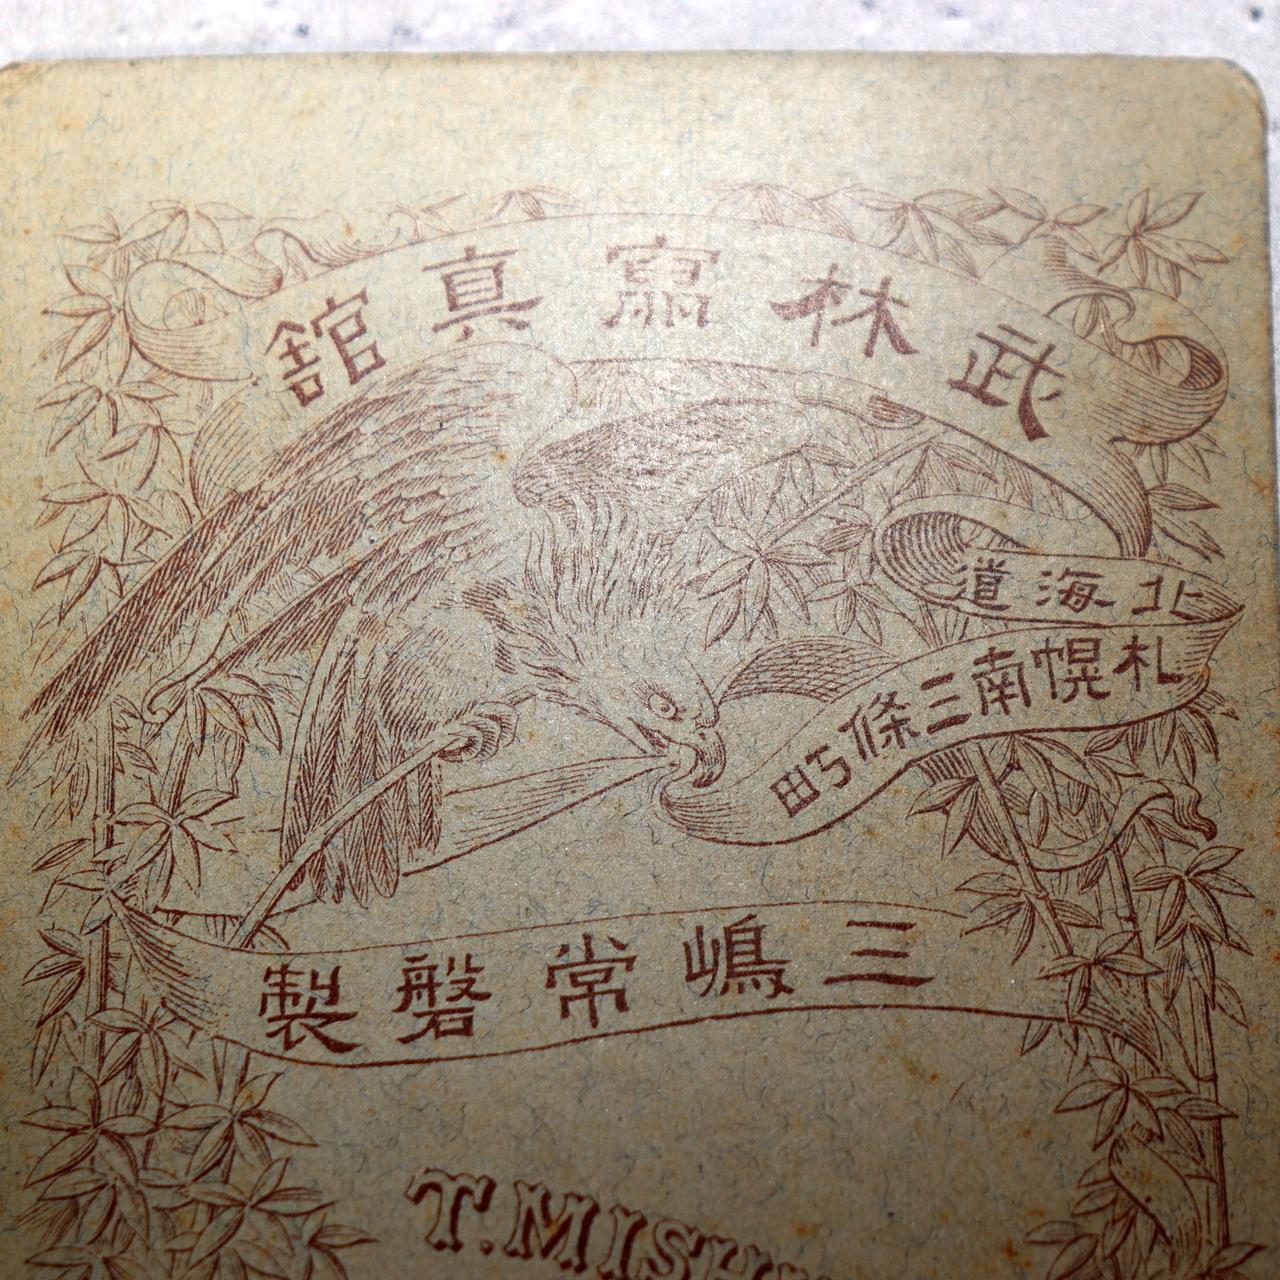 武林寫真舘
北海道
札幌南三條
三嶋常磐製
T.MISH